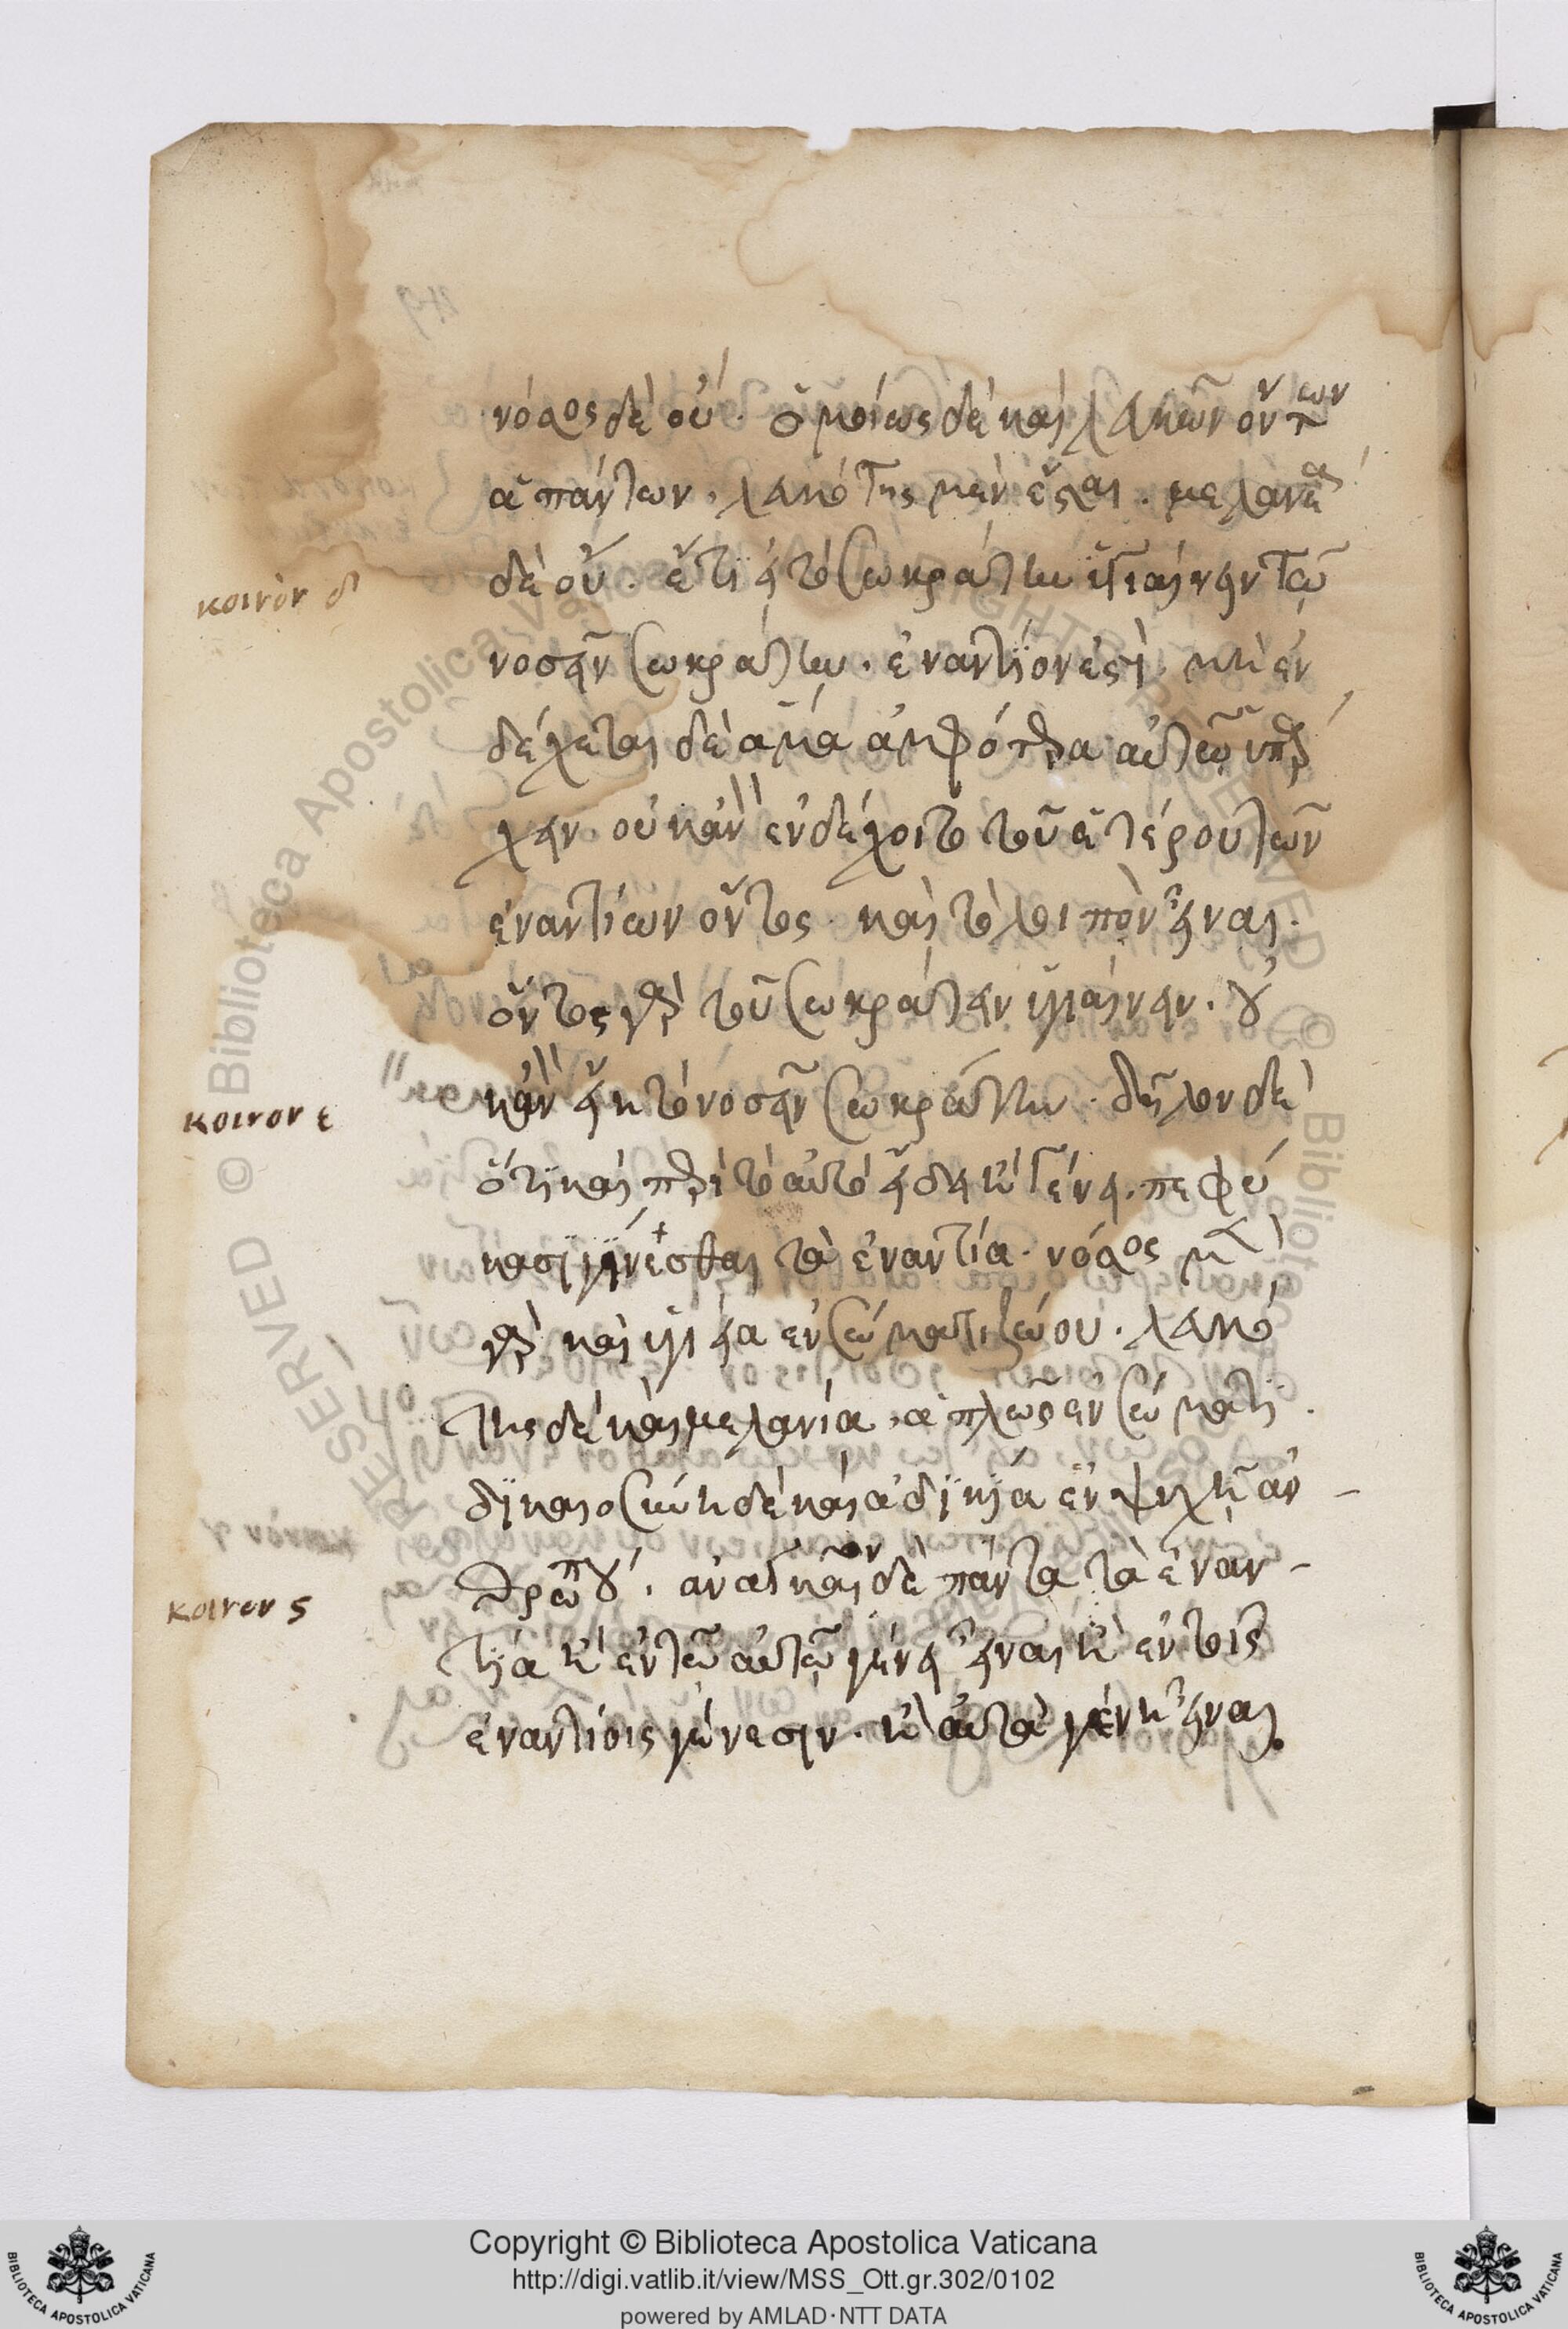 νόσος δὲ οὔ. ὁμοίως δὲ καὶ λευκῶν ὄντων
ἁπάντων. λευκότης μὲν ἔσται. μελανία
δὲ οὔ. ἔτι εἰ τὸ σωκράτην ὑγιαίνειν τῷ
κοινὸν δ
νοσεῖν σωκράτην. ἐναντίον ἐστὶ. μὴ ἐν
δέχεται δὲ ἅμα ἀμφότερα αὐτῷ ὑπάρ
χειν. οὐκ ἂν ἐνδέχοιτο τοῦ ἑτέρου τῶν
ἐναντίων ὄντος. καὶ τὸ λοιπὸν εἶναι.
ὄντος γὰρ τοῦ σωκράτην ὑγιαίνειν. οὐ
κ ἂν εἴη τὸ νοσεῖν σωκράτην. δῆλον δὲ
κοινον ε
ὅτι καὶ περὶ τὸ αὐτὸ εἴδει ἢ γένει. πεφύ
κασι γίνεσθαι τὰ ἐναντία. νόσος μὲν
γὰρ καὶ ὑγιεία ἐν σώματι ζώου. λευκό
της δὲ καὶ μελανία, ἁπλῶς ἐν σώματι.
δικαιοσύνη δὲ καὶ ἀδικία ἐν ψυχῇ ἀν-
θρώπου. ἀναγκαῖον δὲ πάντα τὰ ἐναν-
κοινον ς
τία ἢ ἐν τῷ αὐτῷ γένει εἶναι ἢ ἐν τοῖς
ἐναντίοις γένεσιν. ἢ αὐτὰ γένη εἶναι.
Copyright © Biblioteca Apostolica Vaticana
http://digi.vatlib.it/view/MSS_Ott.gr.302/0102
powered by AMLAD·NTT DATA